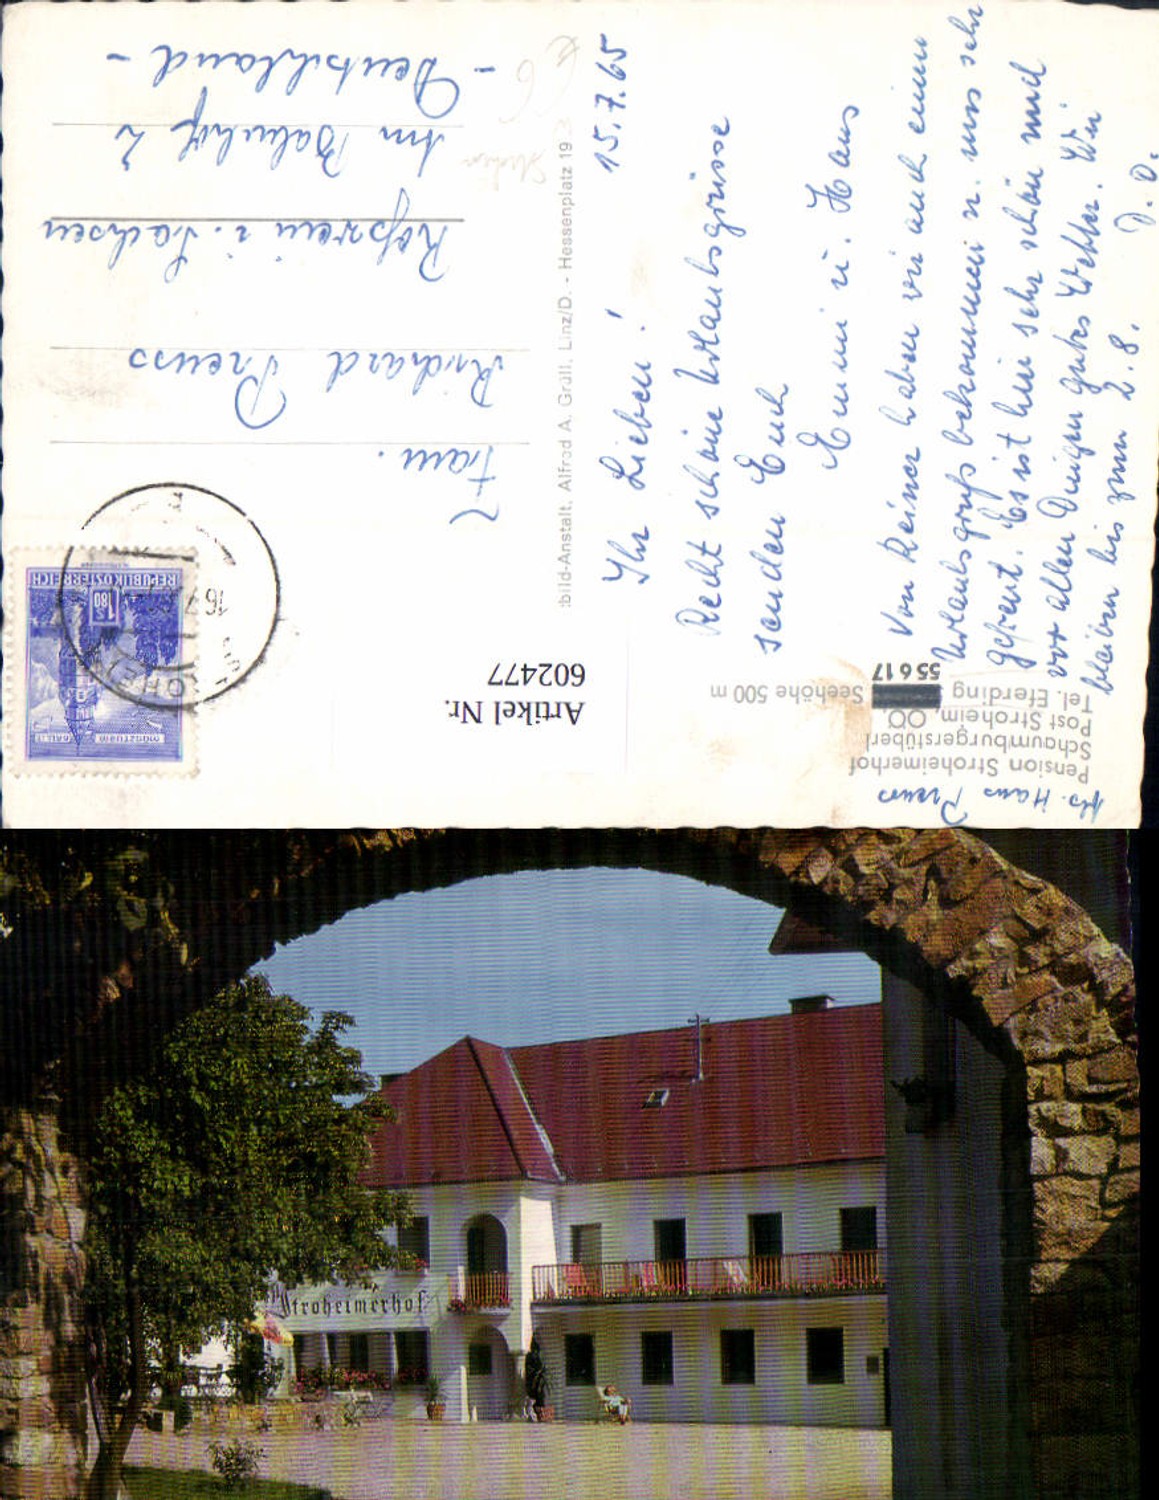 Abs. Hans Preuss
Pension Stroheimerhof
Schaumburgerstüberl
Post Stroheim, OÖ.
Tel. Eferding
55617
Seehöhe 500 m
15.7.65
Ihr Lieben!
Recht schöne Urlaubsgrüsse
senden Euch
Emmi u. Hans
Von Reiner haben wir auch einen
Urlaubsgruß bekommen u. uns sehr
gefreut. Es ist hier sehr schön und
vor allen Dingen gutes Wetter. Wir
bleiben bis zum 2.8.
D. O.
bild-Anstalt, Alfred A. Grüll, Linz/D. - Hessenplatz 19
Artikel Nr.
602477
MÜNZTURM HALL I.T.
1.80
S
REPUBLIK ÖSTERREICH
Fam.
Richard Preuss
Roßwein i. Sachsen
Am Bahnhof 2
- Deutschland -
Stroheimerhof